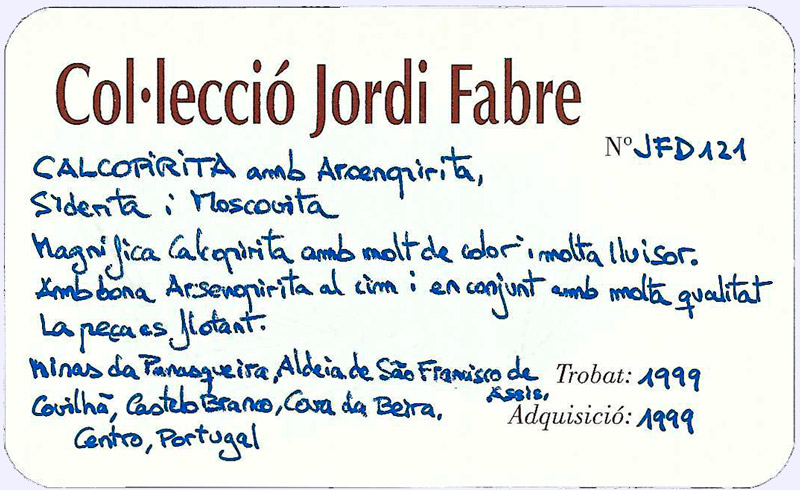 Col·lecció Jordi Fabre
Nº JFD121
CALCOPIRITA amb Arsenopirita,
Siderita i Moscovita
Magnífica Calcopirita amb molt de color i molta lluisor.
Amb bona Arsenopirita al cim i en conjunt amb molta qualitat
La peça es flotant.
Minas da Panasqueira, Aldeia de São Francisco de Assis,
Covilhã, Castelo Branco, Cova da Beira,
Centro, Portugal
Trobat: 1999
Adquisició: 1999